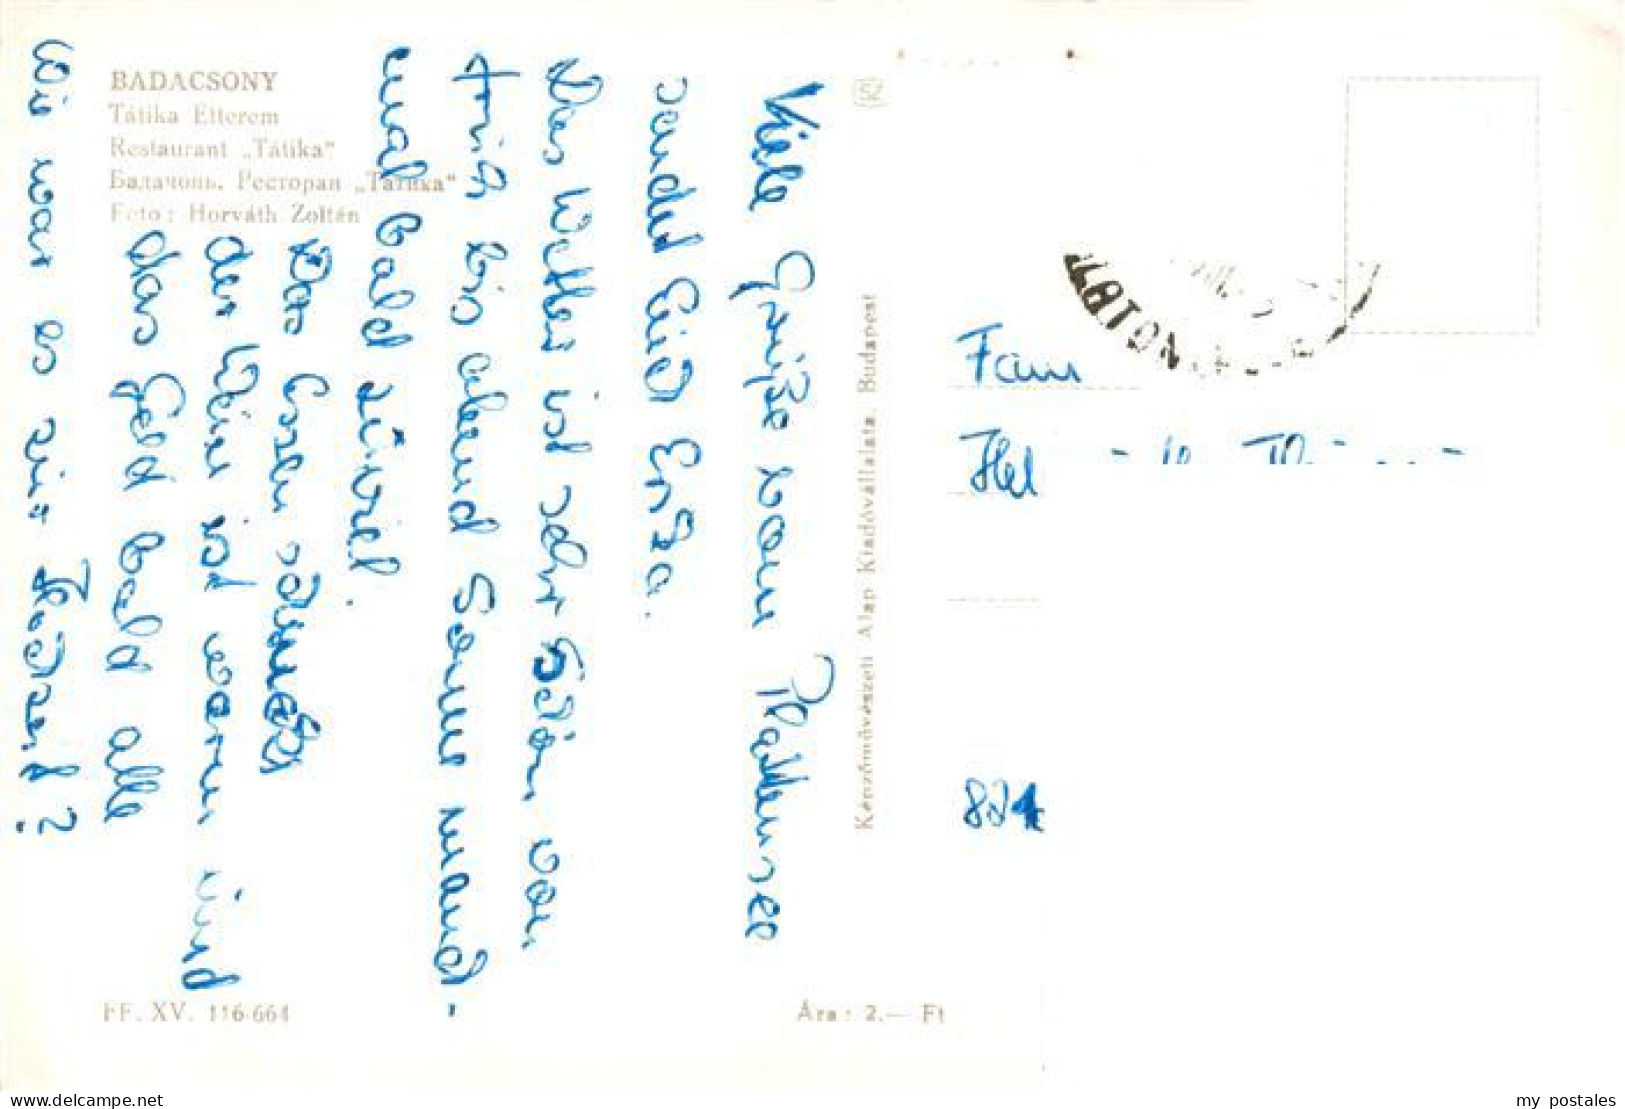 BADACSONY
Tátika Étterem
Restaurant „Tátika“
Бадачонь. Ресторан „Татика“
Foto: Horváth Zoltán
Viele Grüße vom Plattensee
sendet Euch Erika.
Das Wetter ist sehr schön, von
früh bis abend Sonne manch-
mal bald zuviel.
Das Essen schmeckt
der Wein ist warm und
das Geld bald alle
Wie war es in
SZ
Képzőművészeti Alap Kiadóvállalata, Budapest
Fam
Hel
FF. XV. 116-664
Ára: 2.— Ft
delcampe.net
my_postales